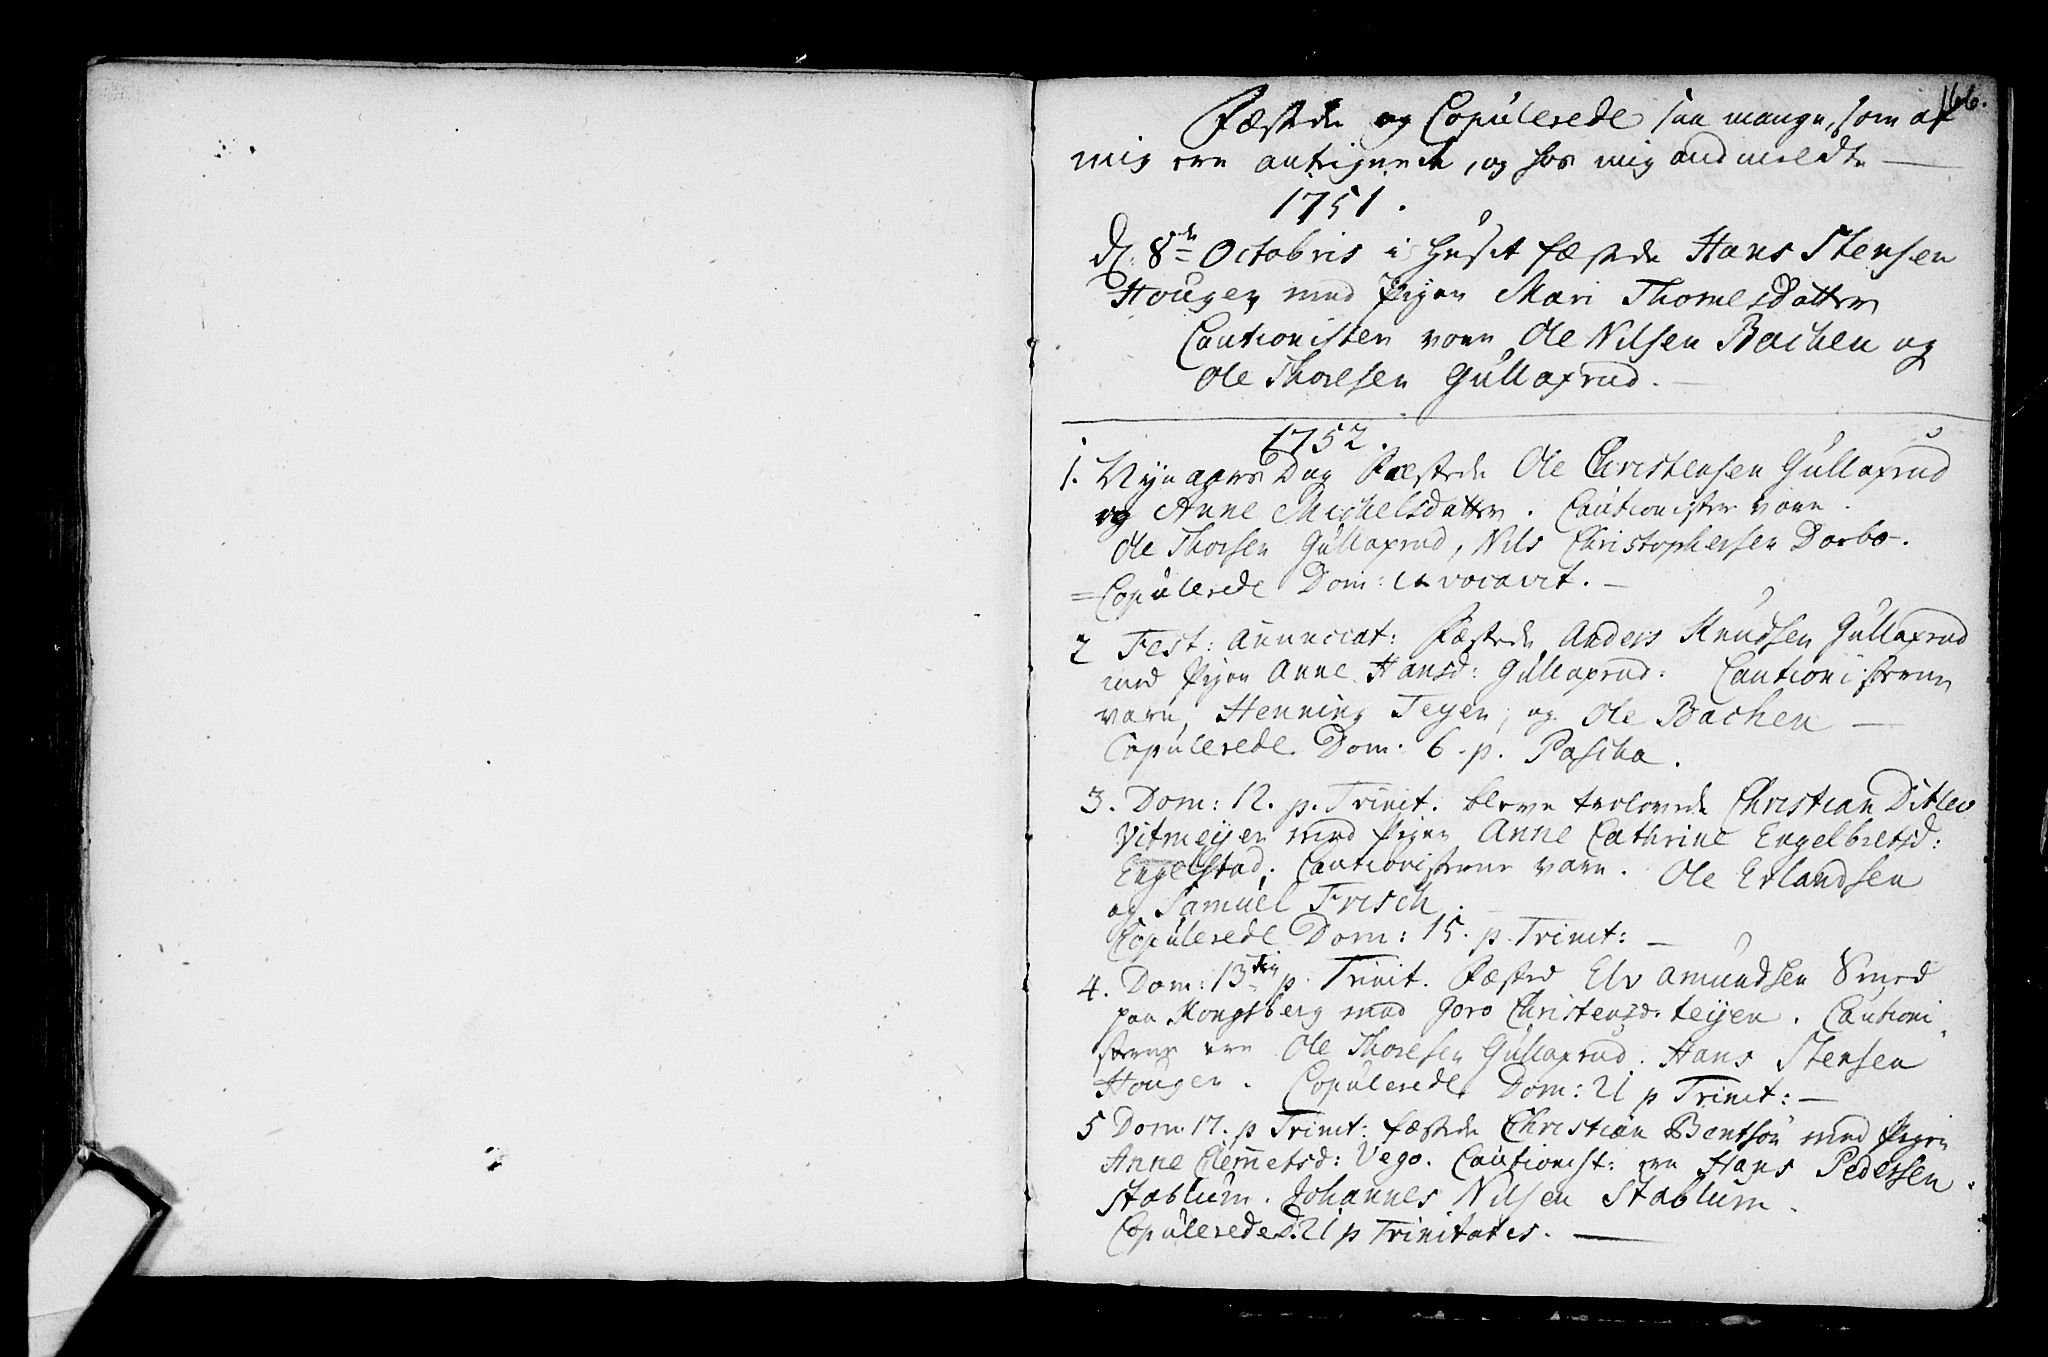 166.
Fæstede og Copulerede saa mange, som af
mig ere antegnede, og hos mig andmeldte —
1751.
d. 8de Octobris i Huset fæstede Hans Stensen
Hougen med Pigen Mari Thomesdatter
Cautionister vare Ole Nilsen Bachen og
Ole Thoresen Gullaxrud. —
1752.
1. Nyeaars Dag Fæstede Ole Christensen Gullaxrud
og Anne Michelsdatter. Cautionister vare.
Ole Thorsen Gullaxrud, Nils Christophersen Darbo.
= Copulerede Dom: Invocavit. —
2 Fest: Annunciat: Fæstede Anders Knudsen Gullaxrud
med Pigen Anne Hansd: Gullaxrud: Cautionisterne
vare, Henning Teyen, og Ole Bachen —
Copulerede Dom: 6. p. Pascha.
3. Dom: 12. p. Trinit. bleve trolovede Christian Ditlev
Vitmeyer med Pigen Anne Cathrine Engelbretsd:
Engelstad; Cautionisterne vare. Ole Erlandsen
og Samuel Frisch.
Copulerede Dom: 15. p. Trinit: —
4. Dom: 13 p. Trinit. Fæsted Elv Amundsen Smed
paa Kongsberg med Goro Christensd: teyen. Cautioni
sterne ere Ole Thoresen Gullaxrud. Hans Stensen
Hougen. Copulerede Dom: 21 p Trinit: —
5 Dom. 17. p Trinit: fæstede Christian Bentsøn med Pigen
Anne Clemetsd: Vego. Cautionist: ere Hans Pedersen
Stablum. Johannes Nilsen Stablum.
Copulerede D: 21 p Trinitates. —